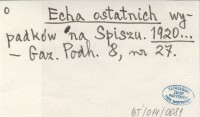 0
Echa ostatnich wy-
padków na Spiszu. 1920...
— Gaz. Podh. 8, nr 27.
BT/014/0081